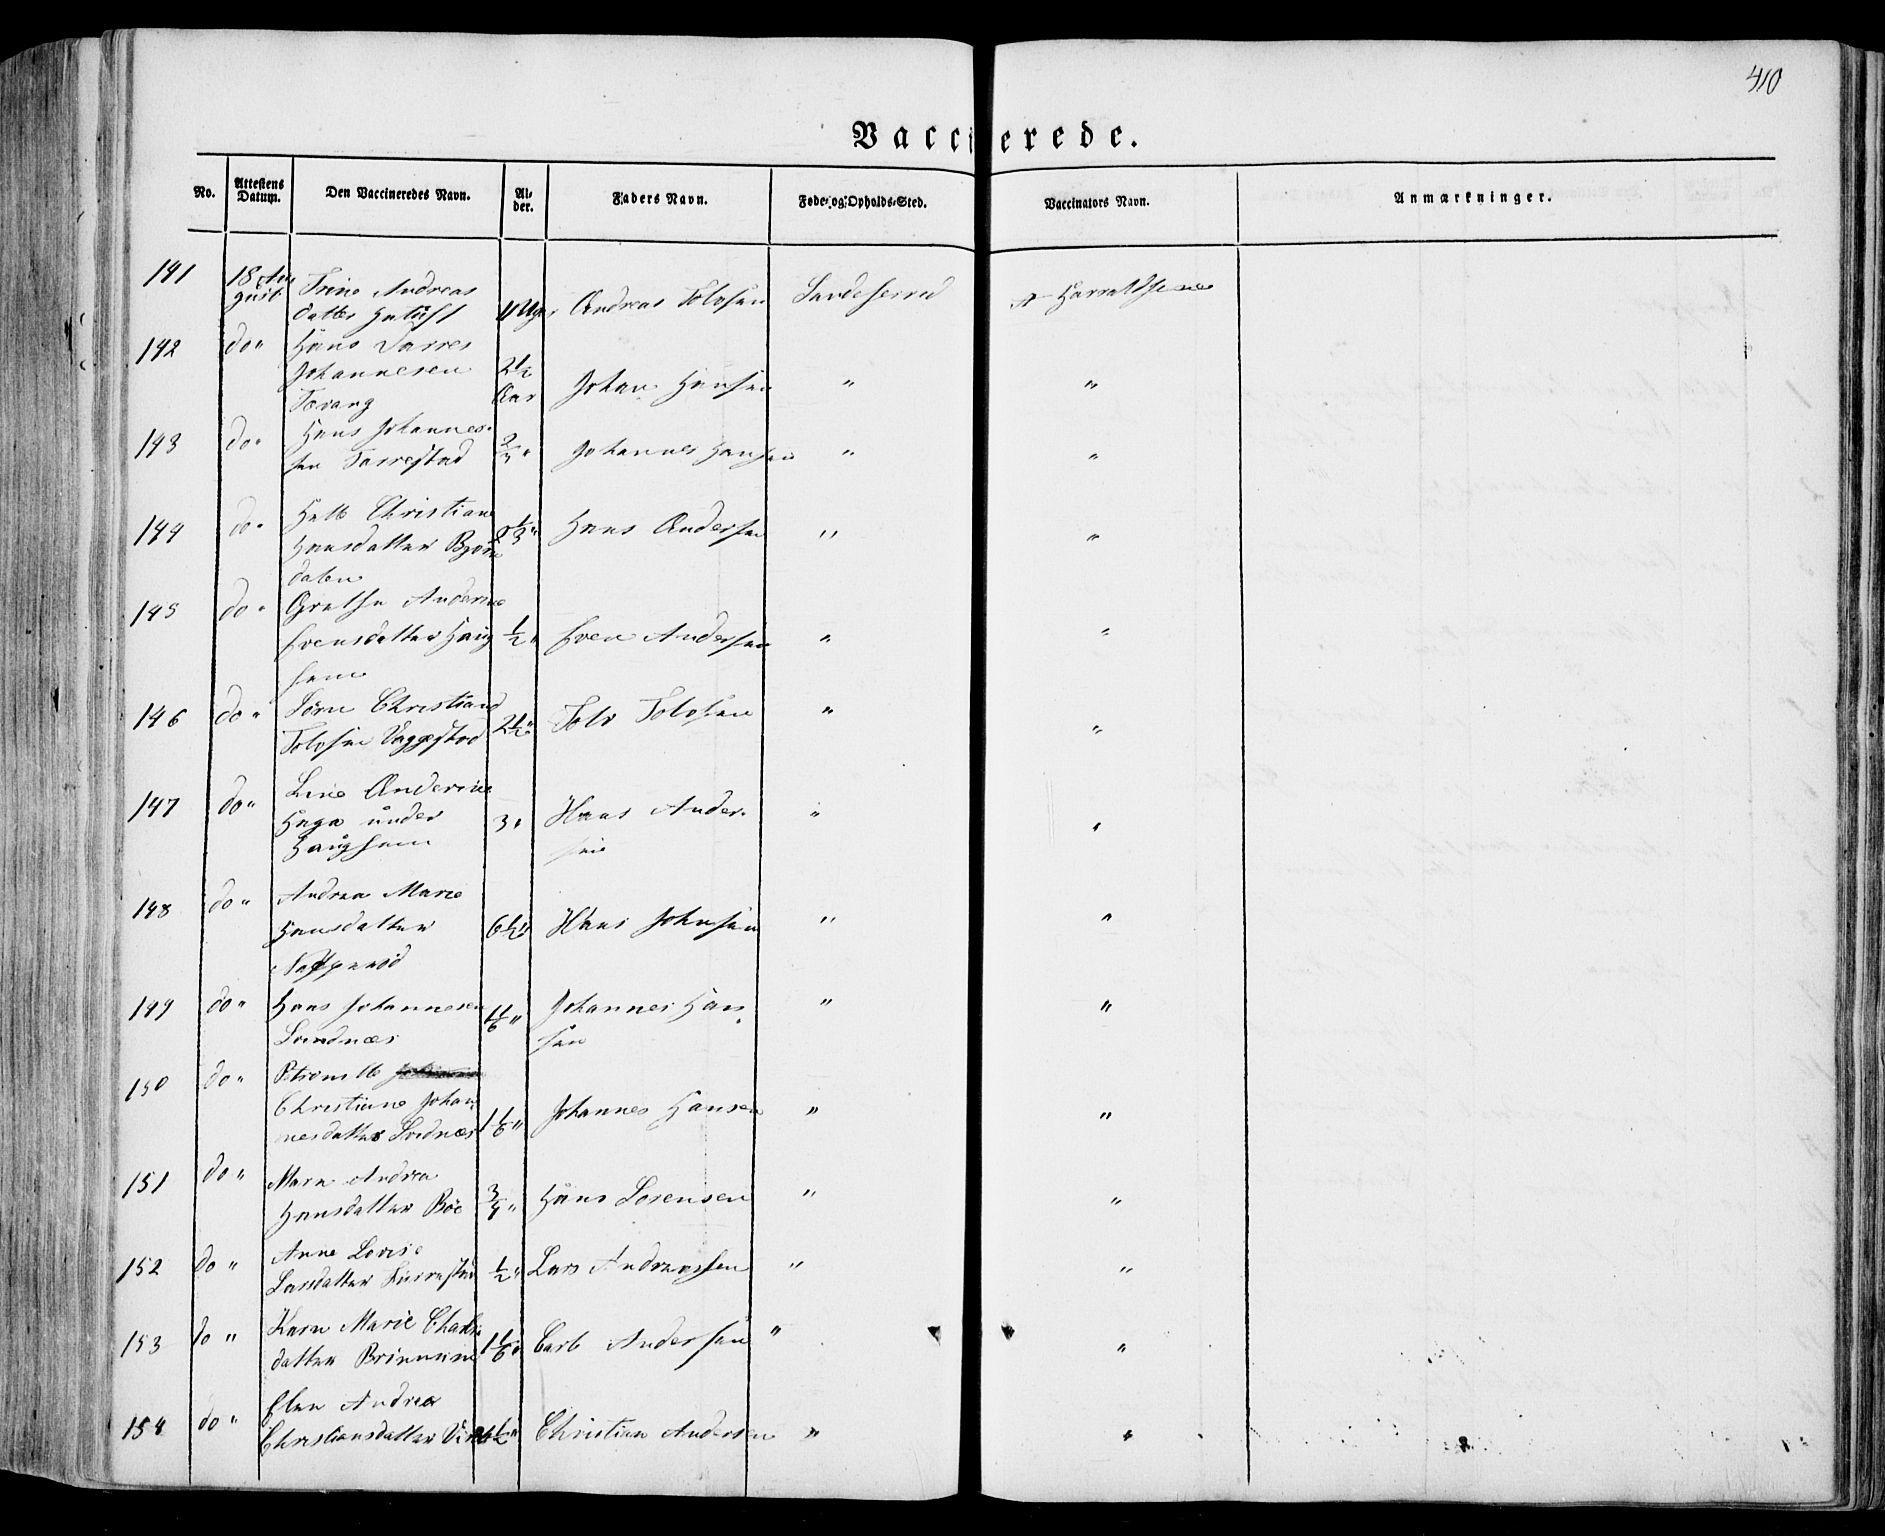 410
Vaccinerede.
No. Attestens Datum. Den Vaccineredes Navn. Al-der. Faders Navn. Føde- og Opholds-Sted. Vaccinators Navn. Anmærkninger.
141 18 Au
gust Trine Andreas
datter 11 Uger Andreas Tolvsen Sandeherred A Harraldsen
142 do " Hans
Johannesen 2½
Aar Johan Hansen " "
143 do " Hans Johannes-
sen Tarrestad Johannes Hansen " "
144 do "
Christiane
Hansdatter Bjørn
dalen " Hans Andersen " "
145 do " Grethe Anderine
Evensdatter Haug
hem ½ " Even Andersen " "
146 do " Sørn Christian
Tolvsen Vaggestad 2½ " Tolv Tolvsen " "
147 do " Anderine
under
Haughem 3 " Hans Ander-
sen " "
148 do " Andrea Marie
Hansdatter 6½ " Hans Johnsen " "
149 do " Hans Johannesen " Johannes Han
sen " "
150 do "
Christiane Johan
nesdatter 1⅙ " Johannes Hansen " "
151 do " Maren Andrea
Hansdatter Böe ¾ " Hans Sorensen " "
152 do " Anne Lovise
Larsdatter ½ " Lars Andreassen " "
153 do " Karn Marie
datter 1⅙ " Carl Andersen " "
154 do " Elen Andrea
Christiansdatter " Christian Andersen " "